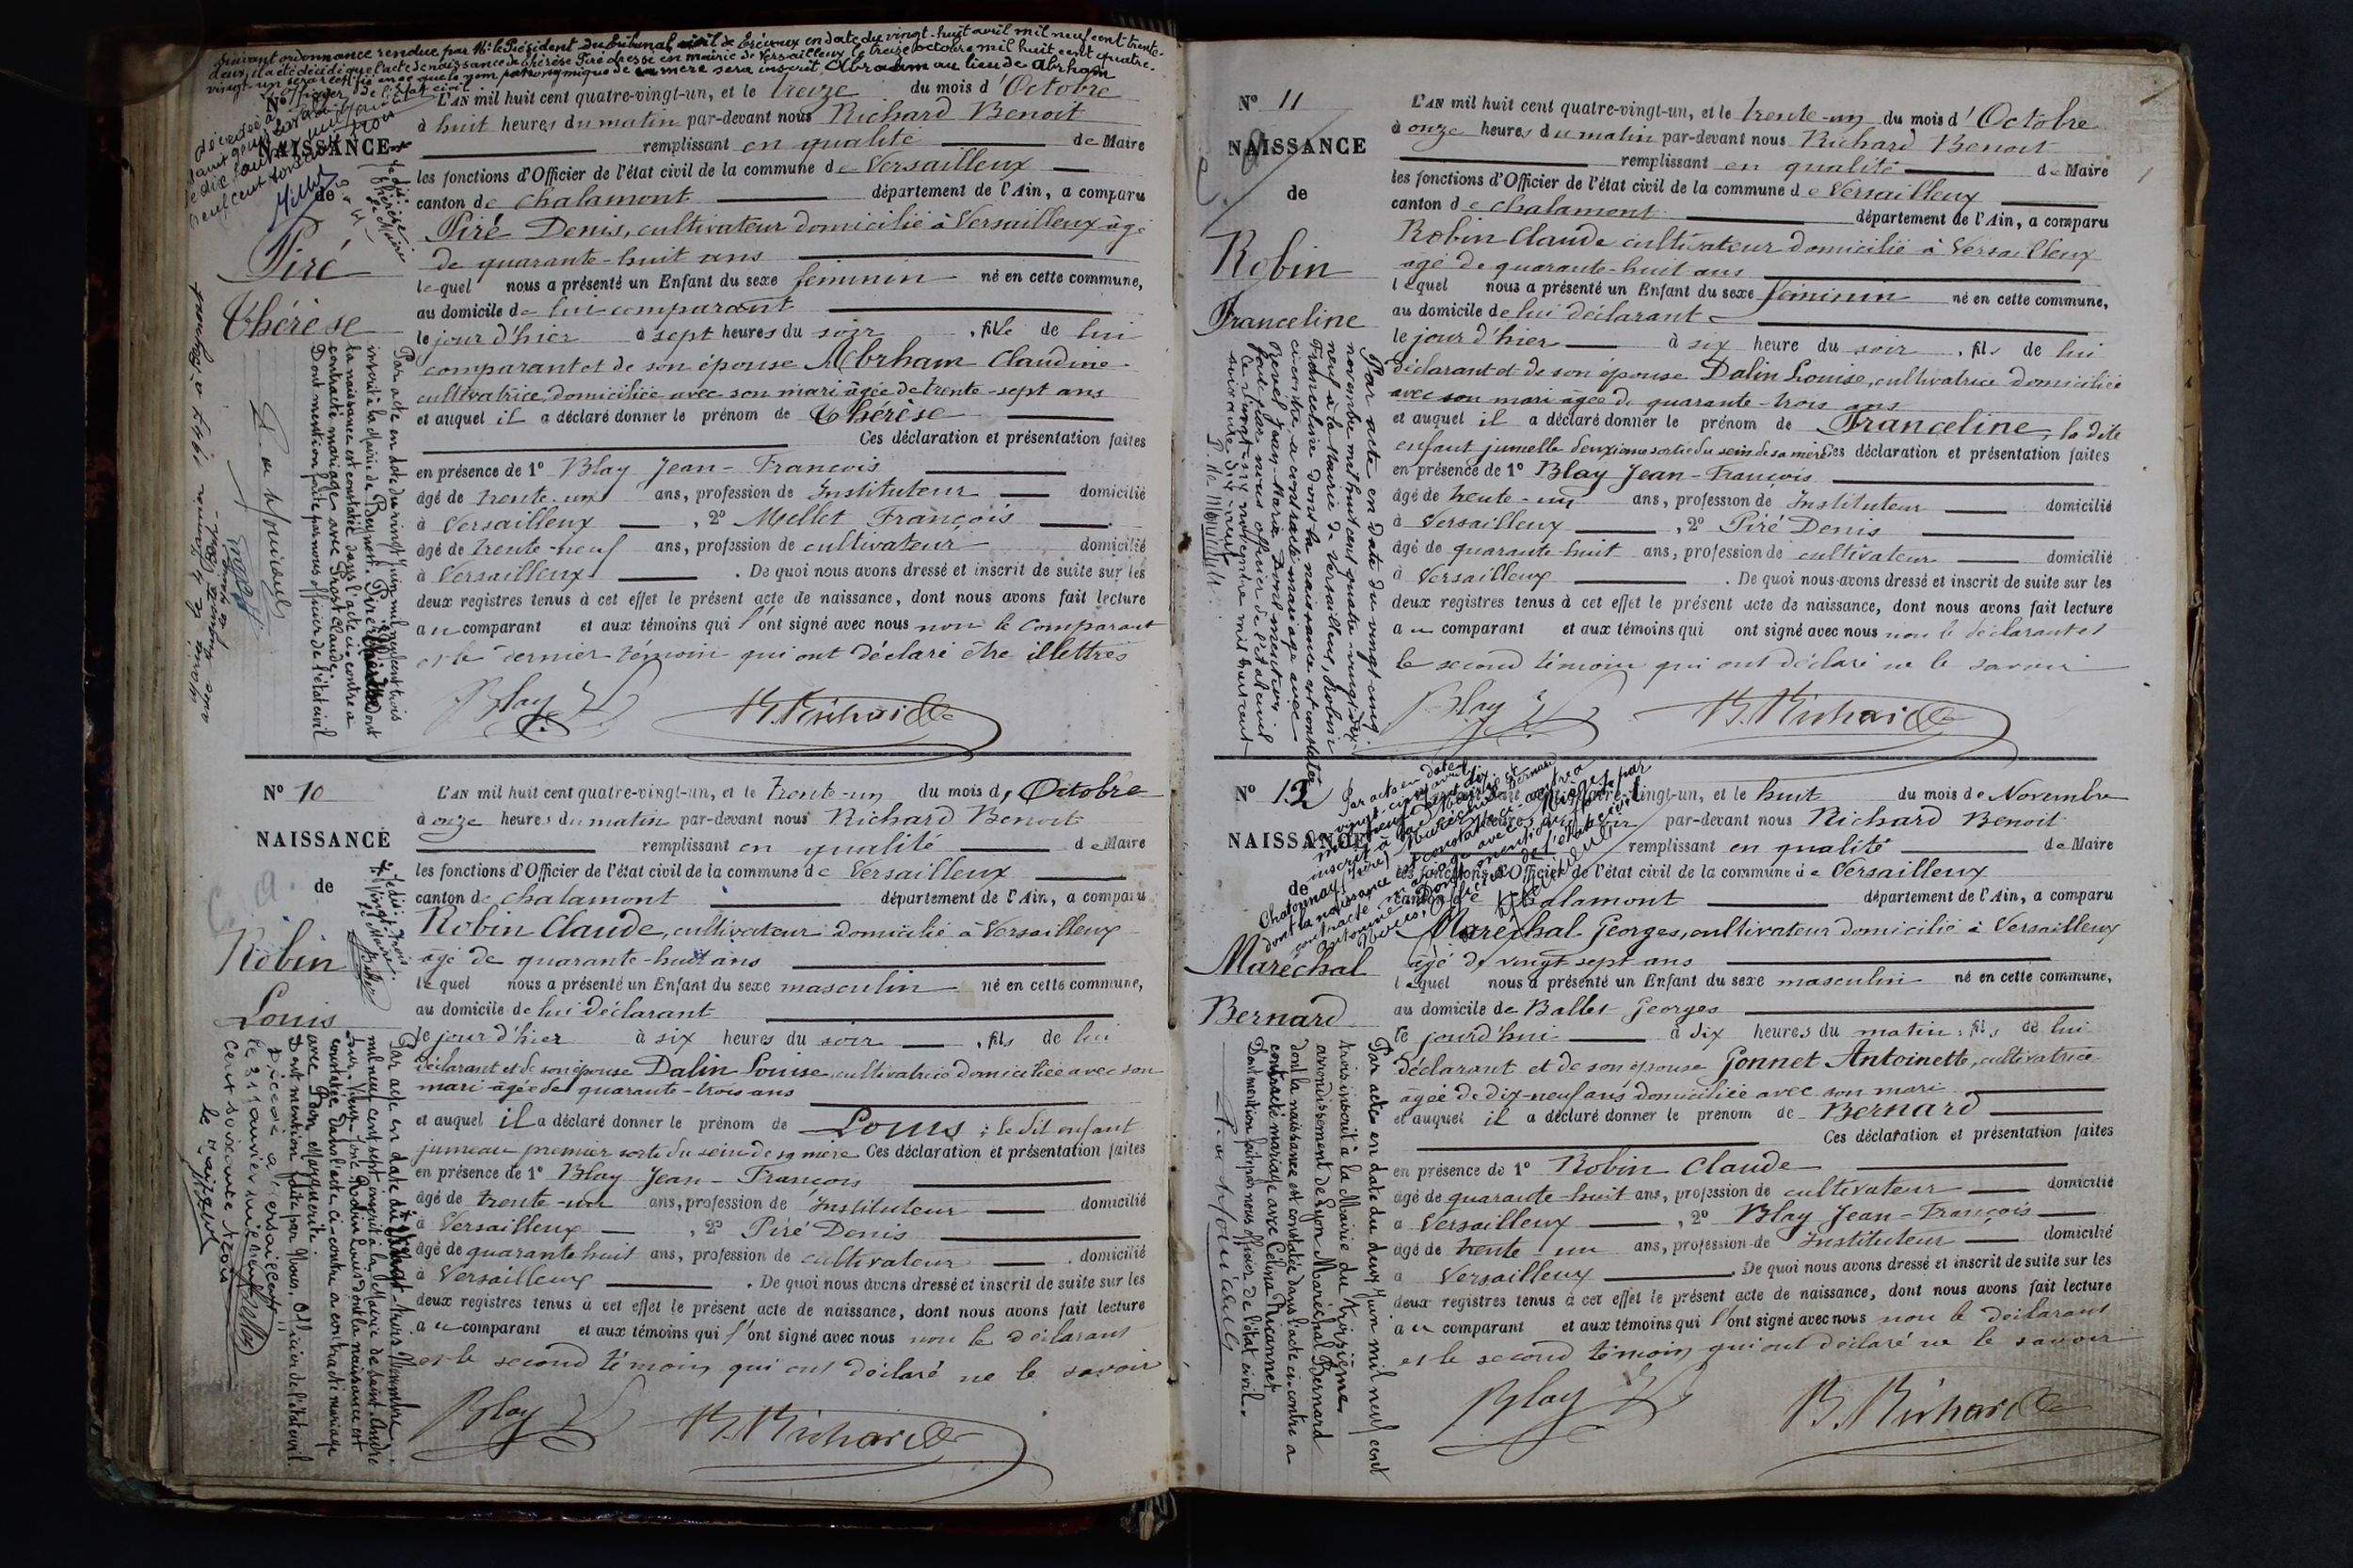 Suivant ordonnance rendue par Mr le Président du tribunal civil de Trévoux en date du vingt-huit avril mil neuf cent trente-
deux, il a été décidé que l'acte de naissance de Thérèse Piré dressé en mairie de Versailleux le treize octobre mil huit cent quatre-
vingt-un sera rectifié en ce que le nom patronymique de sa mère sera inscrit Abraham au lieu de Abrham
L'officier de l'état civil
No
NAISSANCE
de
Piré
Thérèse
L'AN mil huit cent quatre-vingt-un, et le treize du mois d'Octobre
à huit heures du matin par-devant nous Richard Benoit
remplissant en qualité de Maire
les fonctions d'Officier de l'état civil de la commune de Versailleux
canton de Chalamont département de l'Ain, a comparu
Piré Denis, cultivateur domicilié à Versailleux âgé
de quarante-huit ans
lequel nous a présenté un Enfant du sexe féminin né en cette commune,
au domicile de lui comparant
le jour d'hier à sept heures du soir, fille de lui
comparant et de son épouse Abrham Claudine
cultivatrice, domiciliée avec son mari âgée de trente-sept ans
et auquel il a déclaré donner le prénom de Thérèse
Ces déclaration et présentation faites
en présence de 1° Blay Jean-François
âgé de trente-un ans, profession de Instituteur domicilié
à Versailleux, 2° Mellet François
âgé de trente-neuf ans, profession de cultivateur domicilié
à Versailleux. De quoi nous avons dressé et inscrit de suite sur les
deux registres tenus à cet effet le présent acte de naissance, dont nous avons fait lecture
au comparant et aux témoins qui l'ont signé avec nous non le comparant
et le dernier témoin qui ont déclaré être illettrés
Blay B. Richard
Par acte en date du vingt Juin mil neuf cent trois
inscrit à la Mairie de Beynost, Piré Thérèse dont
la naissance est constatée dans l'acte ci-contre a
contracté mariage avec Prost Claude.
Dont mention faite par nous officier de l'état civil
No 10
NAISSANCE
de
Robin
Louis
L'AN mil huit cent quatre-vingt-un, et le trente-un du mois d'Octobre
à onze heures du matin par-devant nous Richard Benoit
remplissant en qualité de Maire
les fonctions d'Officier de l'état civil de la commune de Versailleux
canton de Chalamont département de l'Ain, a comparu
Robin Claude, cultivateur domicilié à Versailleux
âgé de quarante-huit ans
lequel nous a présenté un Enfant du sexe masculin né en cette commune,
au domicile de lui déclarant
le jour d'hier à six heures du soir, fils de lui
déclarant et de son épouse Dalin Louise, cultivatrice domiciliée avec son
mari âgée de quarante-trois ans
et auquel il a déclaré donner le prénom de Louis; le dit enfant
jumeau premier sorti du sein de sa mère Ces déclaration et présentation faites
en présence de 1° Blay Jean-François
âgé de trente-un ans, profession de Instituteur domicilié
à Versailleux, 2° Piré Denis
âgé de quarante huit ans, profession de cultivateur domicilié
à Versailleux. De quoi nous avons dressé et inscrit de suite sur les
deux registres tenus à cet effet le présent acte de naissance, dont nous avons fait lecture
au comparant et aux témoins qui l'ont signé avec nous non le déclarant
et le second témoin qui ont déclaré ne le savoir
Blay B. Richard
Par acte en date du vingt-trois Novembre
mil neuf cent sept inscrit à la Mairie de Saint-André
Robin Louis dont la naissance est
constatée dans l'acte ci-contre a contracté mariage
avec Marguerite.
Dont mention faite par Nous, Officier de l'état civil.
Décédé à Versailleux
le 31 janvier mil neuf
cent soixante trois
No 11
NAISSANCE
de
Robin
Franceline
L'AN mil huit cent quatre-vingt-un, et le trente-un du mois d'Octobre
à onze heures du matin par-devant nous Richard Benoit
remplissant en qualité de Maire
les fonctions d'Officier de l'état civil de la commune de Versailleux
canton de Chalamont département de l'Ain, a comparu
Robin Claude cultivateur domicilié à Versailleux
âgé de quarante-huit ans
lequel nous a présenté un Enfant du sexe féminin né en cette commune,
au domicile de lui déclarant
le jour d'hier à six heure du soir, fils de lui
déclarant et de son épouse Dalin Louise, cultivatrice domiciliée
avec son mari âgée de quarante-trois ans
et auquel il a déclaré donner le prénom de Franceline, la dite
enfant jumelle deuxième sortie du sein de sa mère Ces déclaration et présentation faites
en présence de 1° Blay Jean-François
âgé de trente-un ans, profession de Instituteur domicilié
à Versailleux, 2° Piré Denis
âgé de quarante huit ans, profession de cultivateur domicilié
à Versailleux. De quoi nous avons dressé et inscrit de suite sur les
deux registres tenus à cet effet le présent acte de naissance, dont nous avons fait lecture
au comparant et aux témoins qui ont signé avec nous non le déclarant et
le second témoin qui ont déclaré ne le savoir
Blay B. Richard
Par acte en date du vingt-cinq
novembre mil huit cent quatre-vingt-dix-
neuf à la Mairie de Versailleux, Robin
Franceline dont la naissance est constatée
ci-contre, a contracté mariage avec
Revel Jean-Marie. Dont mention
faite par nous officier de l'état civil
No 12
NAISSANCE
de
Maréchal
Bernard
quatre-vingt-un, et le huit du mois de Novembre
par-devant nous Richard Benoit
remplissant en qualité de Maire
les fonctions d'Officier de l'état civil de la commune de Versailleux
canton de Chalamont département de l'Ain, a comparu
Maréchal Georges, cultivateur domicilié à Versailleux
âgé de vingt sept ans
lequel nous a présenté un Enfant du sexe masculin né en cette commune,
au domicile de Ballet Georges
le jourd'hui à dix heures du matin, fils de lui
déclarant et de son épouse Gonnet Antoinette, cultivatrice
âgée de dix-neuf ans domiciliée avec son mari
et auquel il a déclaré donner le prénom de Bernard
Ces déclaration et présentation faites
en présence de 1° Robin Claude
âgé de quarante-huit ans, profession de cultivateur domicilié
à Versailleux, 2° Blay Jean-François
âgé de trente-un ans, profession de Instituteur domicilié
à Versailleux. De quoi nous avons dressé et inscrit de suite sur les
deux registres tenus à cet effet le présent acte de naissance, dont nous avons fait lecture
au comparant et aux témoins qui l'ont signé avec nous non le déclarant
et le second témoin qui ont déclaré ne le savoir
Blay B. Richard
Par acte en date du deux Juin mil neuf cent
trois inscrit à la Mairie du troisième
arrondissement de Lyon Maréchal Bernard
dont la naissance est constatée dans l'acte ci-contre a
contracté mariage avec Célina
Dont mention faite par nous officier de l'état civil.